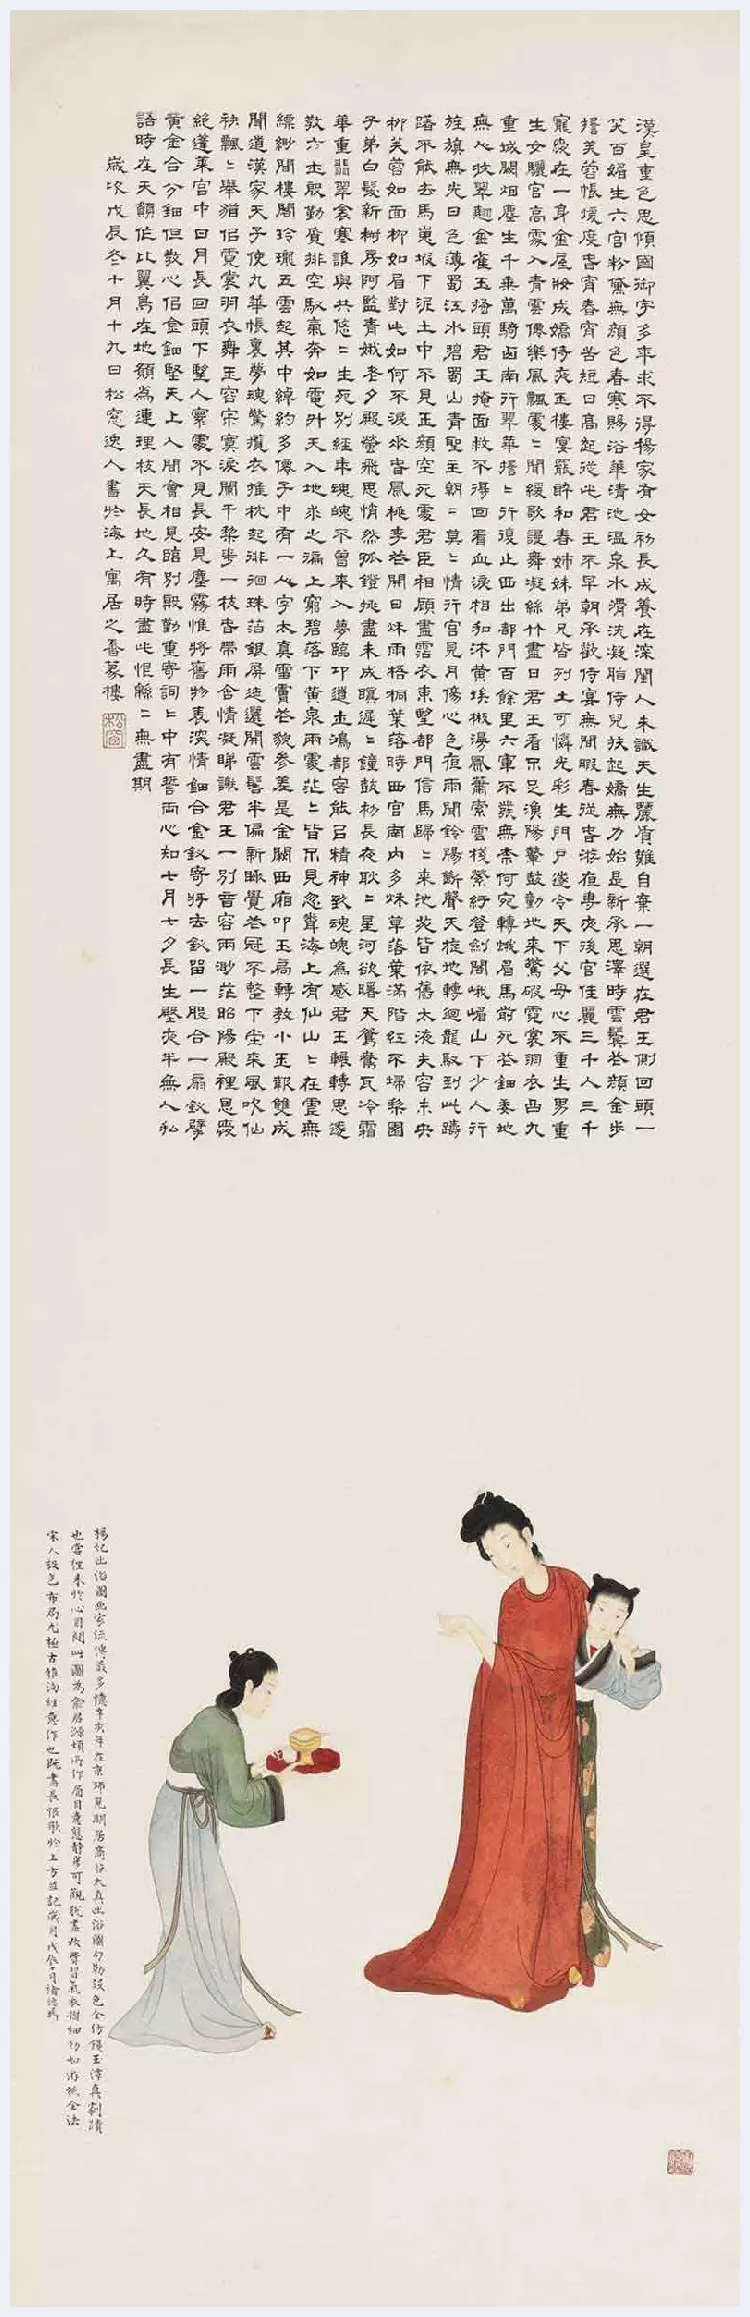 漢皇重色思傾國御宇多年求不得楊家有女初長成養在深閨人未識天生麗質難自棄一朝選在君王側回頭一
笑百媚生六宮粉黛無顏色春寒賜浴華清池溫泉水滑洗凝脂侍兒扶起嬌無力始是新承恩澤時雲鬢花顏金步
搖芙蓉帳暖度春宵春宵苦短日高起從此君王不早朝承歡侍宴無閒暇春從春遊夜專夜後宮佳麗三千人三千
寵愛在一身金屋妝成嬌侍夜玉樓宴罷醉和春姊妹弟兄皆列土可憐光彩生門戶遂令天下父母心不重生男重
生女驪宮高處入青雲僊樂風飄處〻聞緩歌謾舞凝絲竹盡日君王看不足漁陽鼙鼓動地來驚破霓裳羽衣曲九
重城闕烟塵生千乘萬騎西南行翠華搖〻行復止西出都門百餘里六軍不發無奈何宛轉蛾眉馬前死花鈿委地
無人收翠翹金雀玉搔頭君王掩面救不得回看血淚相和流黃埃散漫風蕭索雲棧縈紆登劍閣峨嵋山下少人行
旌旗無光日色薄蜀江水碧蜀山青聖主朝〻莫〻情行宮見月傷心色夜雨聞鈴腸斷聲天旋地轉迴龍馭到此躊
躇不能去馬嵬坡下泥土中不見玉顏空死處君臣相顧盡霑衣東望都門信馬歸〻來池苑皆依舊太液芙蓉未央
柳芙蓉如面柳如眉對此如何不淚垂春風桃李花開日秋雨梧桐葉落時西宮南內多秋草落葉滿階紅不掃梨園
子弟白髮新椒房阿監青娥老夕殿螢飛思悄然孤鐙挑盡未成眠遲〻鐘鼓初長夜耿〻星河欲曙天鴛鴦瓦冷霜
華重翡翠衾寒誰與共悠〻生死別經年魂魄不曾來入夢臨邛道士鴻都客能以精神致魂魄為感君王輾轉思遂
教方士殷勤覓排空馭氣奔如電升天入地求之遍上窮碧落下黃泉兩處茫〻皆不見忽聞海上有仙山〻在虛無
縹緲間樓閣玲瓏五雲起其中綽約多僊子中有一人字太真雪膚花貌參差是金闕西廂叩玉扃轉教小玉報雙成
聞道漢家天子使九華帳裏夢魂驚攬衣推枕起徘徊珠箔銀屏迤邐開雲髻半偏新睡覺花冠不整下堂來風吹仙
袂飄〻舉猶似霓裳羽衣舞玉容寂寞淚闌干梨花一枝春帶雨含情凝睇謝君王一別音容兩渺茫昭陽殿裡恩愛
絕蓬萊宮中日月長回頭下望人寰處不見長安見塵霧惟將舊物表深情鈿合金釵寄將去釵留一股合一扇釵擘
黃金合分鈿但教心似金鈿堅天上人間會相見臨別殷勤重寄詞〻中有誓兩心知七月七夕長生殿夜半無人私
語時在天願作比翼鳥在地願為連理枝天長地久有時盡此恨緜〻無盡期
歲次戊辰冬十月十九日松窗逸人書於海上寓居之
樓
松窗
楊妃出浴圖
宋人設色布局